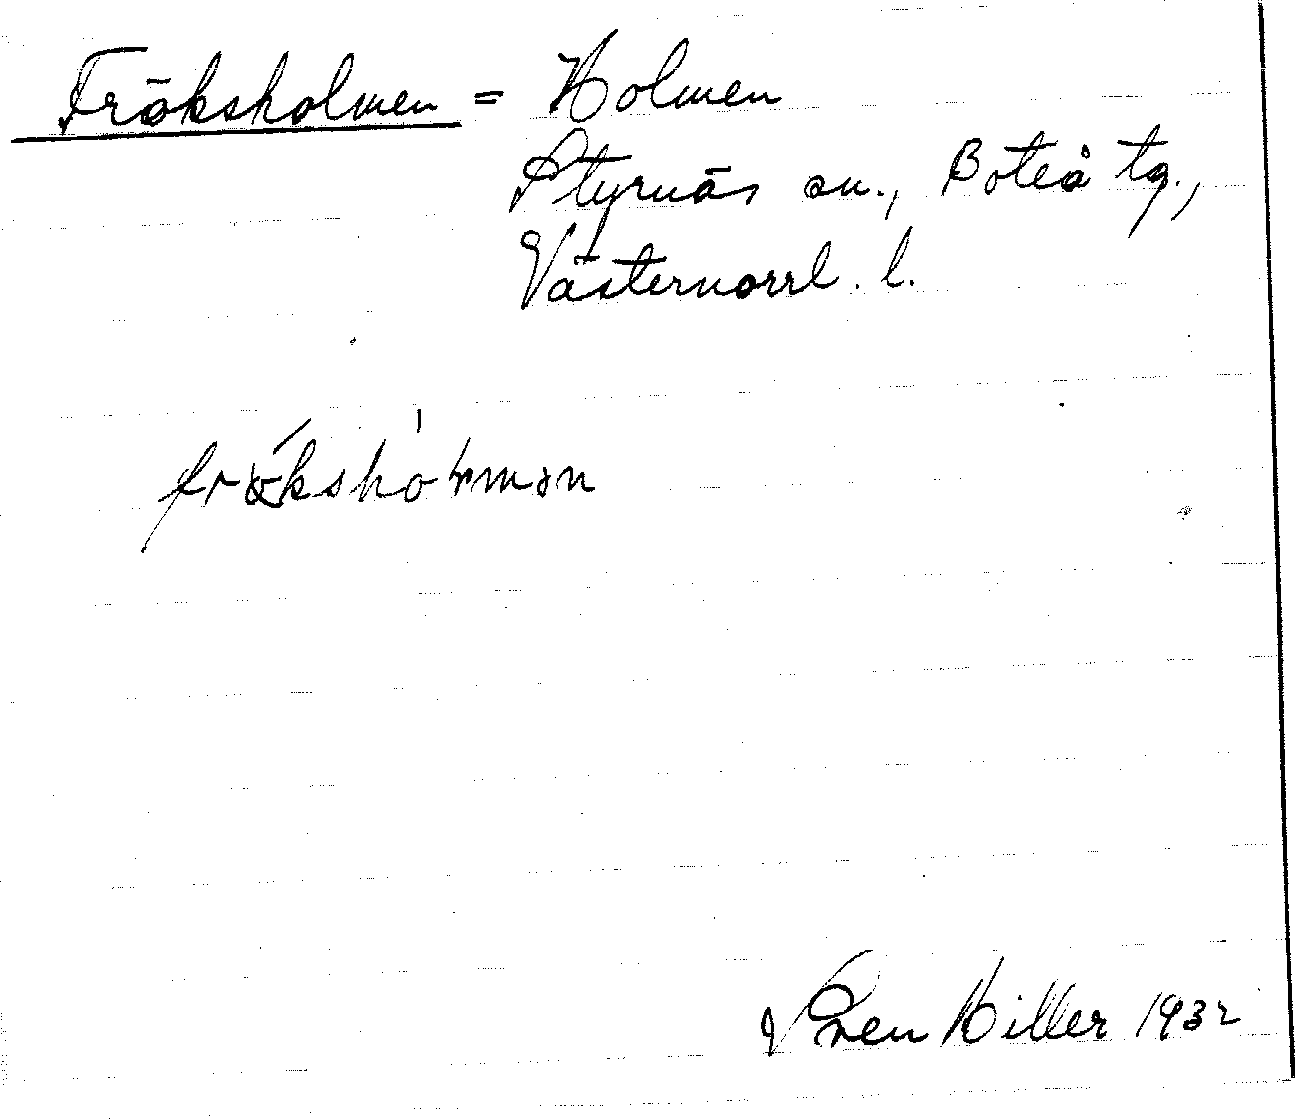 Fröksholmen = Holmen
Styrnäs sn., Boteå tg.,
Västernorrl. l.
Sven Hiller 1932